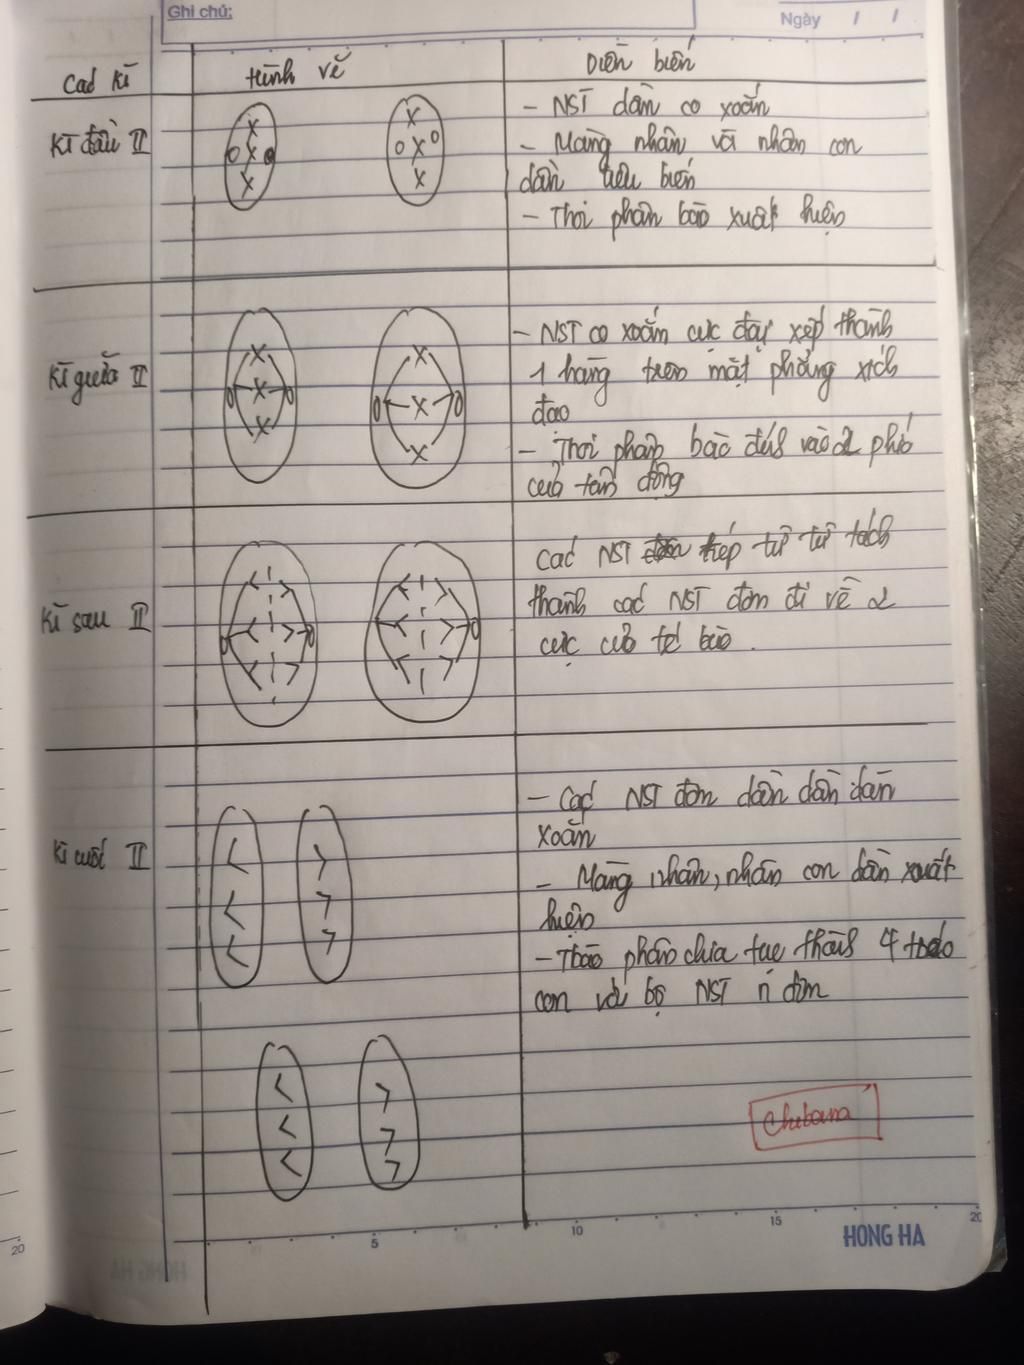 Ghi chú:
Ngày / /
Các kì
Hình vẽ
Diễn biến
Kì đầu II
- NST dần co xoắn
- Màng nhân và nhân con
dần tiêu biến
- Thoi phân bào xuất hiện
Kì giữa II
- NST co xoắn cực đại xếp thành
1 hàng trên mặt phẳng xích
đạo
- Thoi phân bào đính vào 2 phía
của tâm động
Kì sau II
Các NST kép từ từ tách
thành các NST đơn đi về 2
cực của tế bào.
Kì cuối II
- Các NST đơn dần dần dãn
xoắn
- Màng nhân, nhân con dần xuất
hiện
- phân chia thành 4
con với bộ NST n đơn
5
10
15
20
20
HONG HA